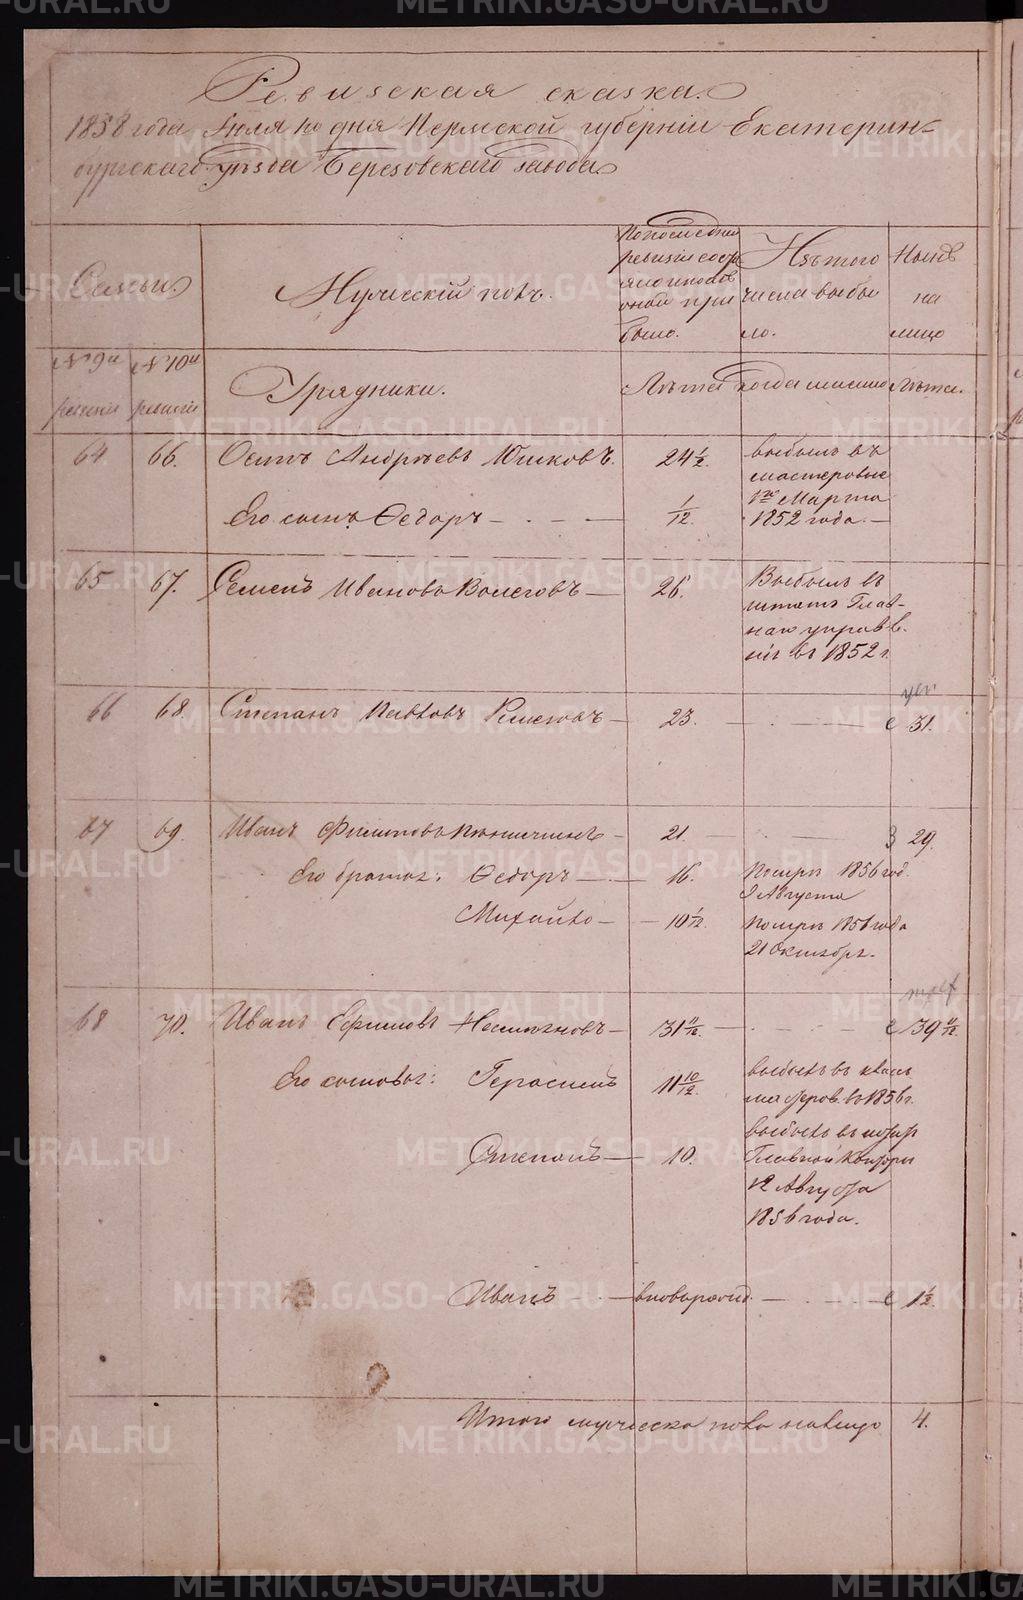 Ревизская сказка.
1858 года Iюля 10 дня Пермской губернiи Екатерин-
бургскаго уѣзда Березовскаго завода
Семьи.
Мужескiй полъ.
По последней
ревизiи состо
яло и послѣ
оной при
было.
Изъ того
числа выбы
ло.
Нынѣ
на
лицо
№ 9й
ревизiи
№ 10й
ревизiи
Урядники.
Лѣта
когда именно
Лѣта.
64 66. Осипъ Андрѣевъ Юшковъ. 24 1/2.
выбылъ въ
мастеровые
1го Марта
1852 года. —
Его сынъ Ѳедоръ — 1/12.
65 67. Семенъ Ивановъ Волеговъ — 26.
Выбылъ въ
штатъ Глав-
наго управле
нiя въ 1852 г.
66 68 Степанъ Павловъ — 23. — 31.
67 69. Иванъ Филиповъ — 21. — 29.
Его братья: Ѳедоръ — 16.
Померъ 1856 год.
9 Августа
Михайло — 10 1/12.
померъ 1856 года
21 октября.
68 70. Иванъ Ефимовъ — 31 11/12 — 39 11/12.
Его сыновья: Герасимъ 11 10/12.
выбылъ въ
мастеров. въ 1856 г.
Степанъ — 10.
выбылъ въ штатъ
Главной Конторы
12 Августа
1856 года.
Иванъ — вновь рожд. — 1 1/2.
Итого мужеска пола налицо 4.
METRIKI.GASO-URAL.RU